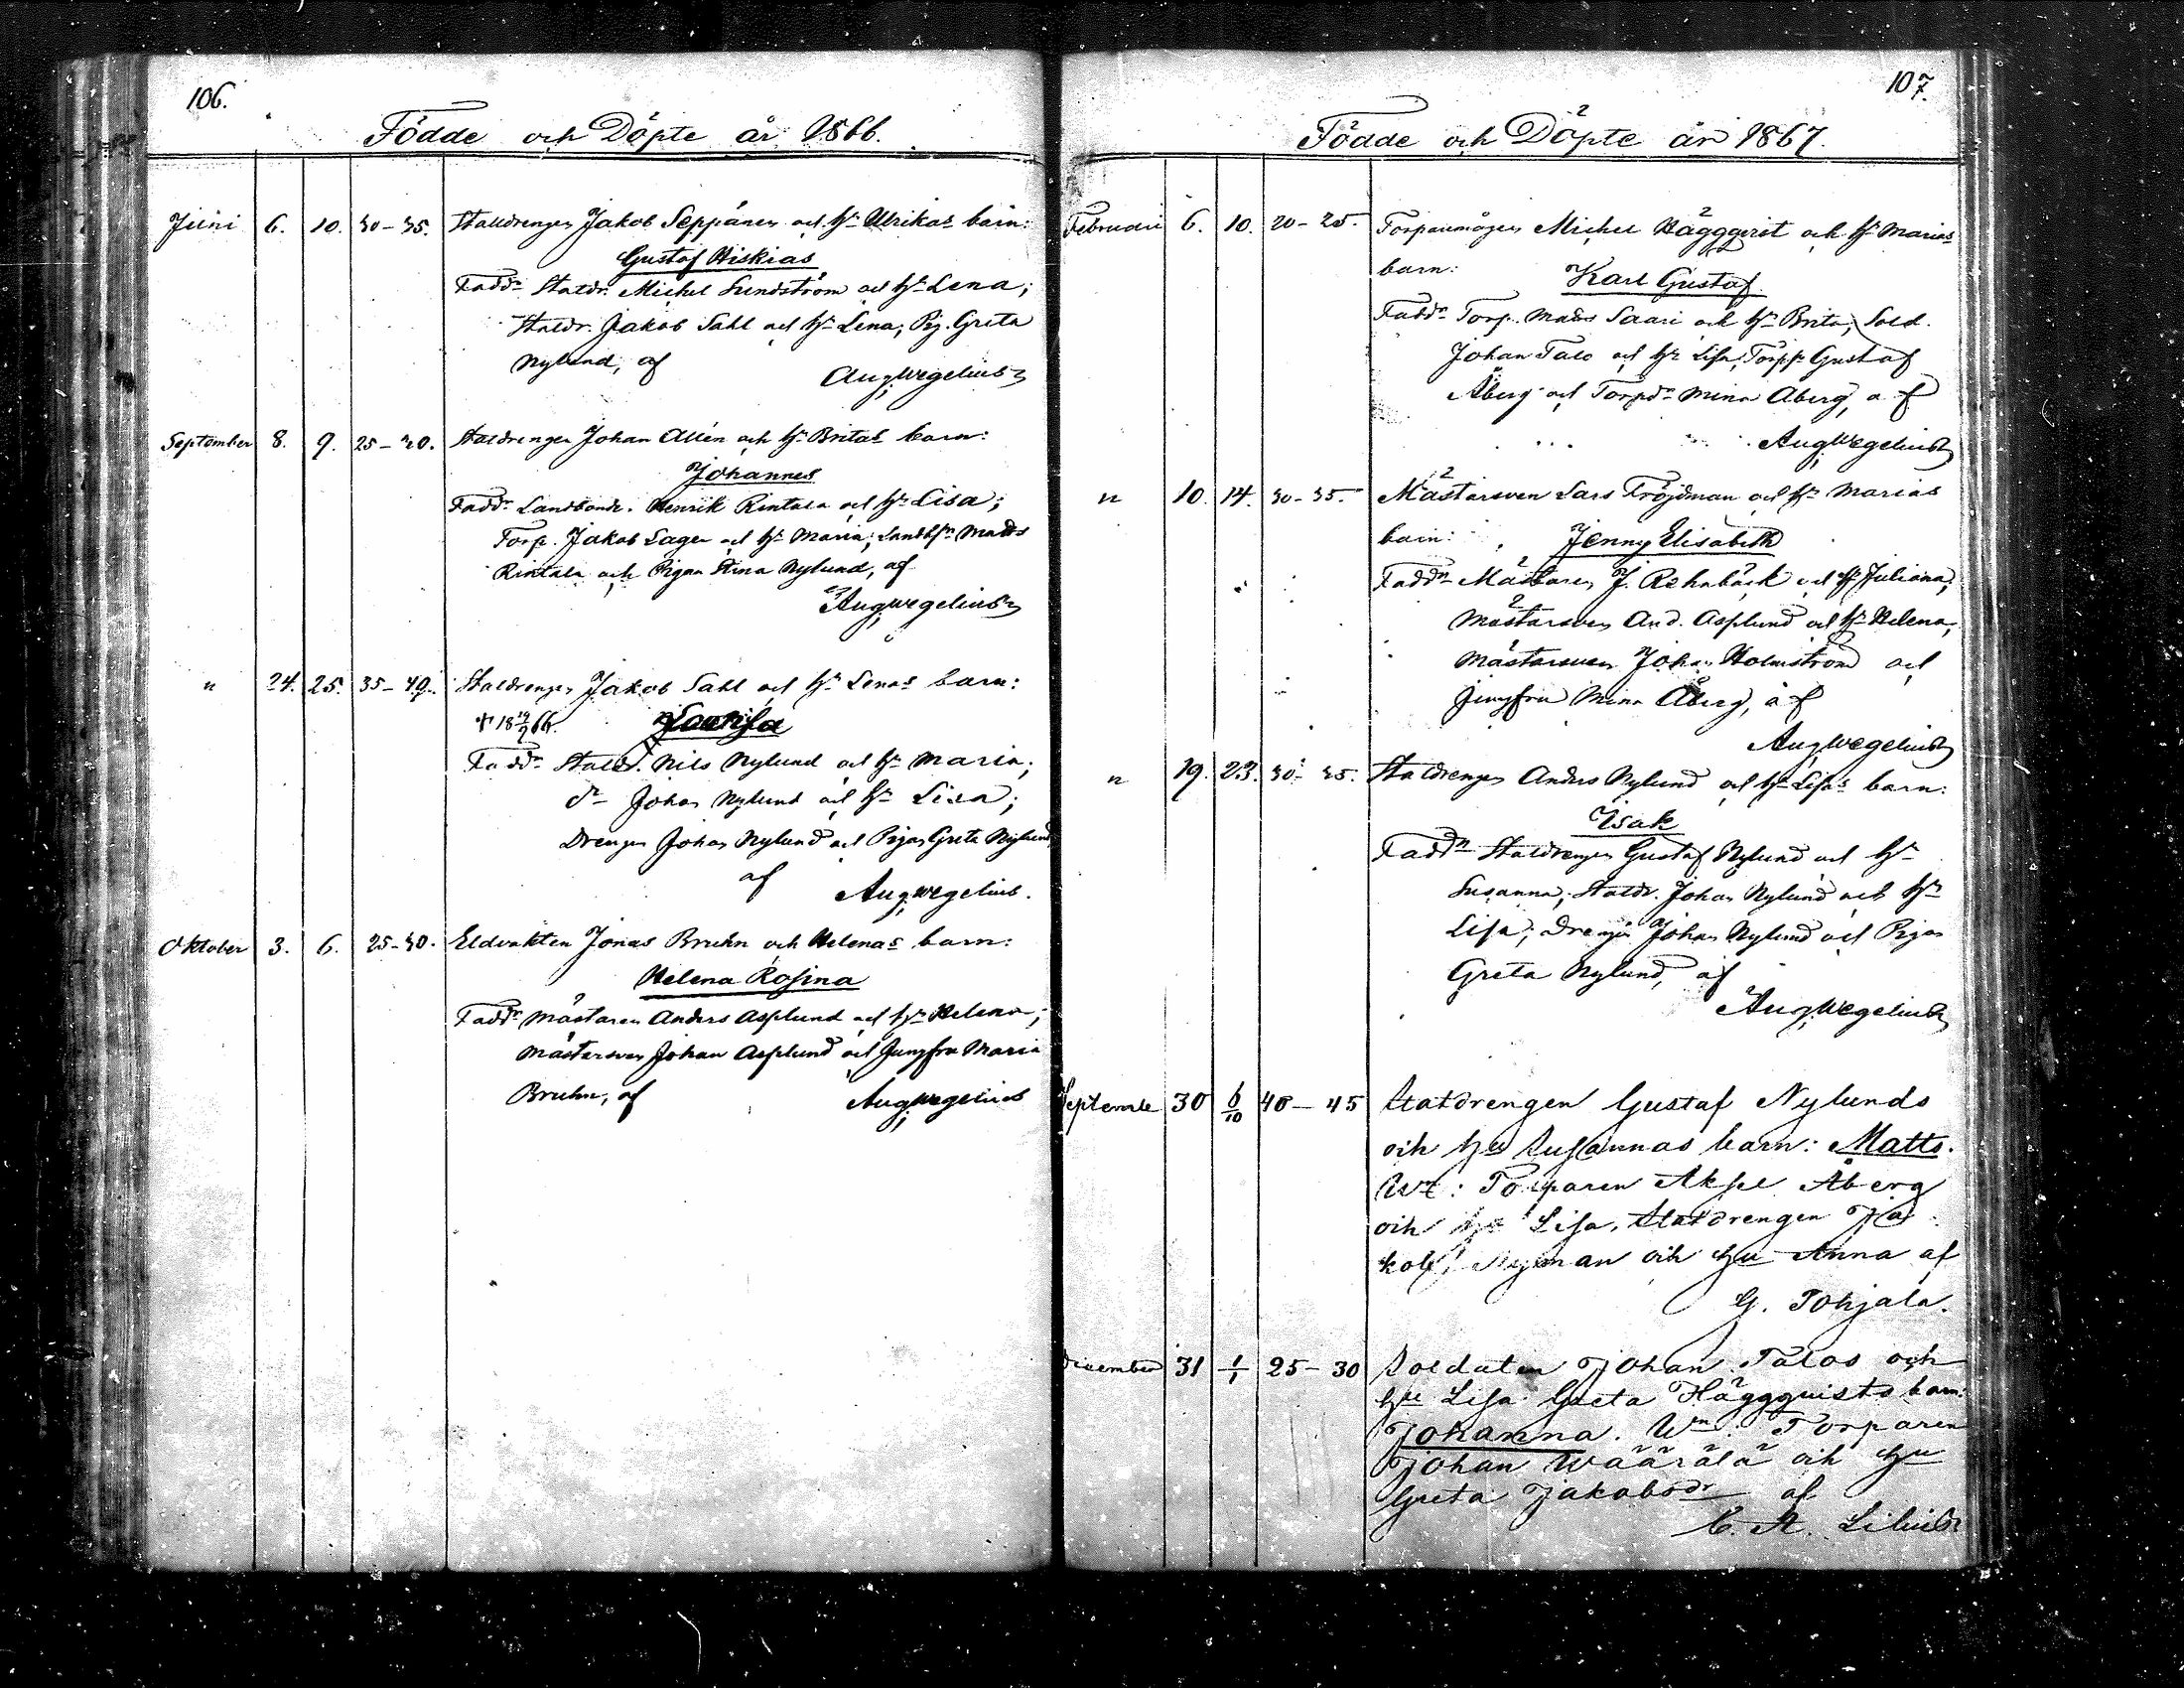 106.
Födde och Döpte år 1866.
Juni 6. 10. 30-35. Staldrengen Jakob Seppänen och hu Ulrikas barn:
Gustaf Hiskias
Faddr Staldr. Michel Sundström och hu Lena;
Staldr. Jakob Sahl och hu Lena; Pig. Greta
Nylund, af
Aug. Wegelius
September 8. 9. 25-30. Staldrengen Johan Allén och hu Britas barn:
Johannes
Faddr Landbonde. Henrik Rintala och hu Lisa;
Torp. Jakob Lager och hu Maria; Matts
Rintala och Pigan Stina Nylund, af
Aug. Wegelius
" 24. 25. 35-40. Staldrengen Jakob Sahl och hu Lenas barn:
Lovisa
Faddr Staldr. Nils Nylund och hu Maria;
dr Johan Nylund och hu Lisa;
Drengen Johan Nylund och Pigan Greta Nylund
af
Aug. Wegelius.
Oktober 3. 6. 25-30. Eldvakten Jonas Bruhn och Helenas barn:
Helena Rosina
Faddr Mästaren Anders Asplund och hu Helena;
Mästersven Johan Asplund och Jungfru Maria
Bruhn, af
Aug. Wegelius
107.
Födde och Döpte år 1867.
Februari 6. 10. 20-25. Michel Häggqvist och hu Marias
barn:
Karl Gustaf.
Faddr Torp. Matts Saari och hu Brita, Sold.
Johan Talo och hu Lisa, Torpp Gustaf
Åberg och Torpdr Mina Åberg, af
Aug. Wegelius
" 10. 14. 30-35. Mästarsven Lars Fröjdman och hu Marias
barn:
Jenny Elisabeth
Faddr Mästaren J. Rehnbäck och hu Juliana;
Mästarsven And. Asplund och hu Helena,
Mästarsven Johan Holmström och
Jungfru Mina Åberg, af
Aug. Wegelius
" 19. 23. 30-35. Staldrengen Anders Nylund och hu Lisas barn:
Isak
Faddr Staldrengen Gustaf Nylund och hu
Susanna; Staldr. Johan Nylund och hu
Lisa; Drengen Johan Nylund och Pigan
Greta Nylund, af
Aug. Wegelius
Septembe 30 6/10 40-45 Statdrengen Gustaf Nylunds
och hu Susannas barn: Matts.
Wn: Torparen Aksel Åberg
och hu Lisa, Statdrengen Ja-
kob Nyman och hu Anna af
G. Tohjala.
December 31 1/1 25-30 Soldaten Johan Talos och
hu Lisa Greta Häggquists barn:
Johanna. Wn: Torparen
Johan Wäärälä och hu
Greta Jakobsdr af
C. A. Lilius